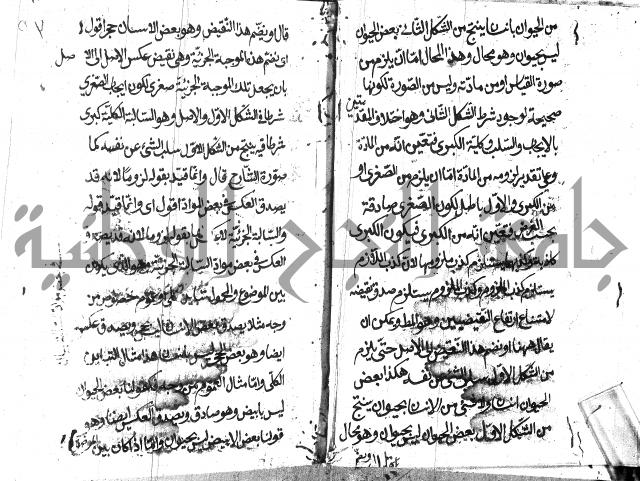 من الحيوان بانسان ينتج من الشكل الثانى بعض الحيوان
ليس بحيوان وهو محال وهذا المحال اما ان يلزم من
صورة القياس او من مادته وليس من الصورة لكونها
صحيحة لوجود شرط الشكل الثانى وهو اختلاف المقدمتين
بالايجاب والسلب وكلية الكبرى فتعين انه من المادة
وعلى تقدير لزومه من المادة اما ان يلزم من الصغرى او
من الكبرى والاول باطل لكون الصغرى صادقة
فتعين انه من الكبرى فيكون الكبرى
كذب اللازم
يستلزم كذب الملزوم وكذب الملزوم يستلزم صدق نقيضه
لامتناع ارتفاع النقيضين وهو المط ويمكن ان
يقال ههنا او نضم هذا النقيض الى الاصل حتى يلزم
من الشكل الاول سلب الشئ عن نفسه هكذا بعض
الحيوان انسان ولا شئ من الانسان بحيوان ينتج
من الشكل الاول بعض الحيوان ليس بحيوان وهو محال
قال ويضم هذا النقيض وهو بعض الانسان حجر اقول
اى نضم هذا الموجبة الجزئية وهى نقيض عكس الاصل الى الاصل
بان يجعل تلك الموجبة الجزئية صغرى لكون ايجاب الصغرى
شرطا فى الشكل الاول والاصل وهو السالبة الكلية كبرى
شرطا فيه ينتج من الشكل الاول سلب الشئ عن نفسه كما
صوره الشارح قال وانما قيد بقوله لزوما لانه قد
يصدق العكس فى بعض المواد اقول اى وانما قيد قوله
والسالبة الجزئية لا بقوله لزوما لانه قد يصدق
العكس فى بعض مواد السالبة الجزئية وهو الذى يكون
بين الموضوع والمحمول تباين كلى او عموم وخصوص من
وجه مثلا يصدق بعض الانسان ليس بحجر ويصدق عكسه
ايضا وهو بعض الحجر ليس بانسان هذا مثال التباين
الكلى واما مثال العموم من وجه فكقولنا بعض الحيوان
ليس بابيض وهو صادق ويصدق العكس ايضا وهو
قولنا بعض الابيض ليس بحيوان واما اذا كان بين
جامعة النجاح الوطنية